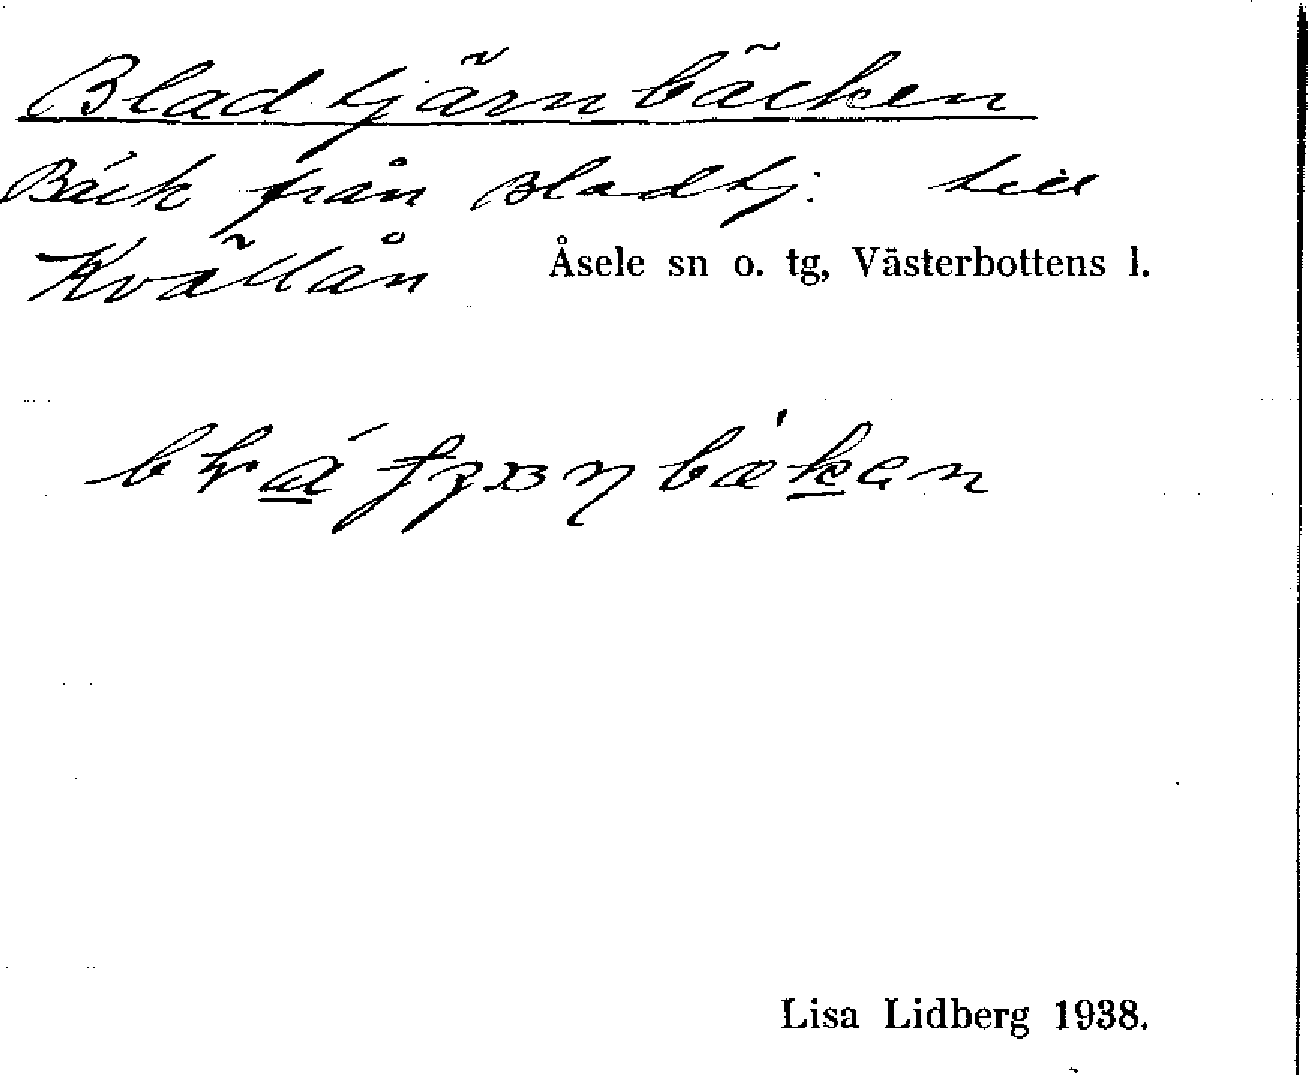 Bladtjärnbäcken
Bäck från Bladtj. till
Kvällån Åsele sn o. tg, Västerbottens l.
Lisa Lidberg 1938.